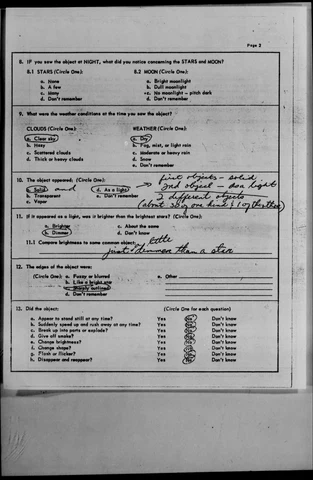 Page 2
8. IF you saw the object at NIGHT, what did you notice concerning the STARS and MOON?
8.1 STARS (Circle One): 8.2 MOON (Circle One):
a. None a. Bright moonlight
b. A few b. Dull moonlight
c. Many c. No moonlight - pitch dark
d. Don't remember d. Don't remember
9. What were the weather conditions at the time you saw the object?
CLOUDS (Circle One): WEATHER (Circle One):
a. Clear sky a. Dry
b. Hazy b. Fog, mist, or light rain
c. Scattered clouds c. Moderate or heavy rain
d. Thick or heavy clouds d. Snow
e. Don't remember
10. The object appeared: (Circle One): first objects - solid.
a. Solid and d. As a light 2nd object -
b. Transparent e. Don't remember 2 different objects
c. Vapor (about 30 of one kind & 1 of the other)
11. If it appeared as a light, was it brighter than the brightest stars? (Circle One):
a. Brighter c. About the same
b. Dimmer d. Don't know
11.1 Compare brightness to some common object: little
just dimmer than a star
12. The edges of the object were:
(Circle One): a. Fuzzy or blurred e. Other
b. Like a bright star
c. Sharply outlined
d. Don't remember
13. Did the object: (Circle One for each question)
a. Appear to stand still at any time? Yes No Don't know
b. Suddenly speed up and rush away at any time? Yes No Don't know
c. Break up into parts or explode? Yes No Don't know
d. Give off smoke? Yes No Don't know
e. Change brightness? Yes No Don't know
f. Change shape? Yes No Don't know
g. Flash or flicker? Yes No Don't know
h. Disappear and reappear? Yes No Don't know